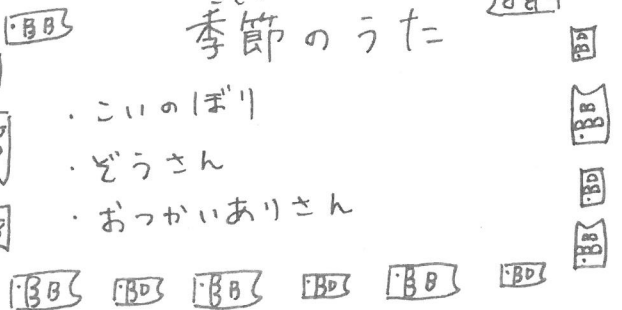 季節のうた
・こいのぼり
・ぞうさん
・おつかいありさん